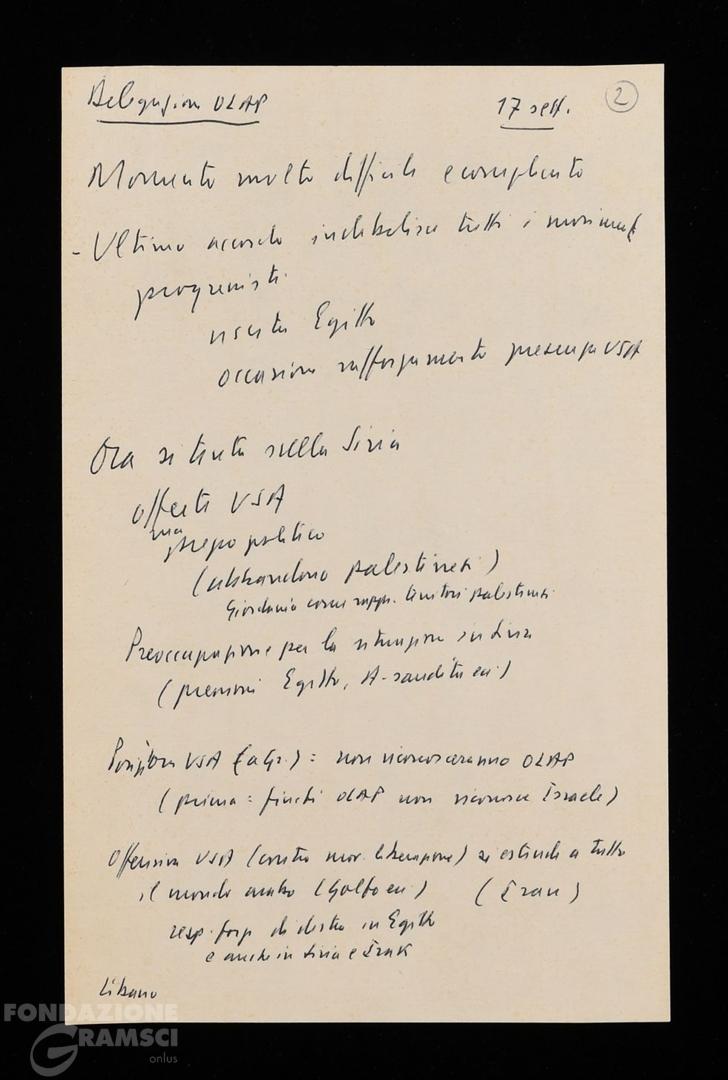 Delegazione OLAP 17 sett. 2
Momento molto difficile e complicato
- Ultimo accordo indebolisce tutti i movimenti
progressisti
uscita Egitto
occasione rafforzamento presenza USA
Ora si tenta sulla Siria
offerte USA
ma prezzo politico
(abbandono palestinesi)
Giordania come rappr. territori palestinesi
Preoccupazione per la situazione siriana
(pressioni Egitto, A-saudita ecc)
Posizione USA : non riconosceranno OLAP
(prima = finché OLAP non riconosce Israele)
Offensiva USA (contro mov. liberazione) si estende a tutto
il mondo arabo (Golfo ecc) (Iran)
resp. forze di destra in Egitto
e anche in Siria e Irak
Libano
FONDAZIONE
GRAMSCI
onlus